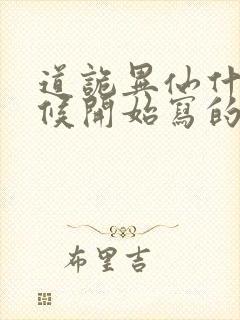 道詭異仙什
候開始寫的
布里吉